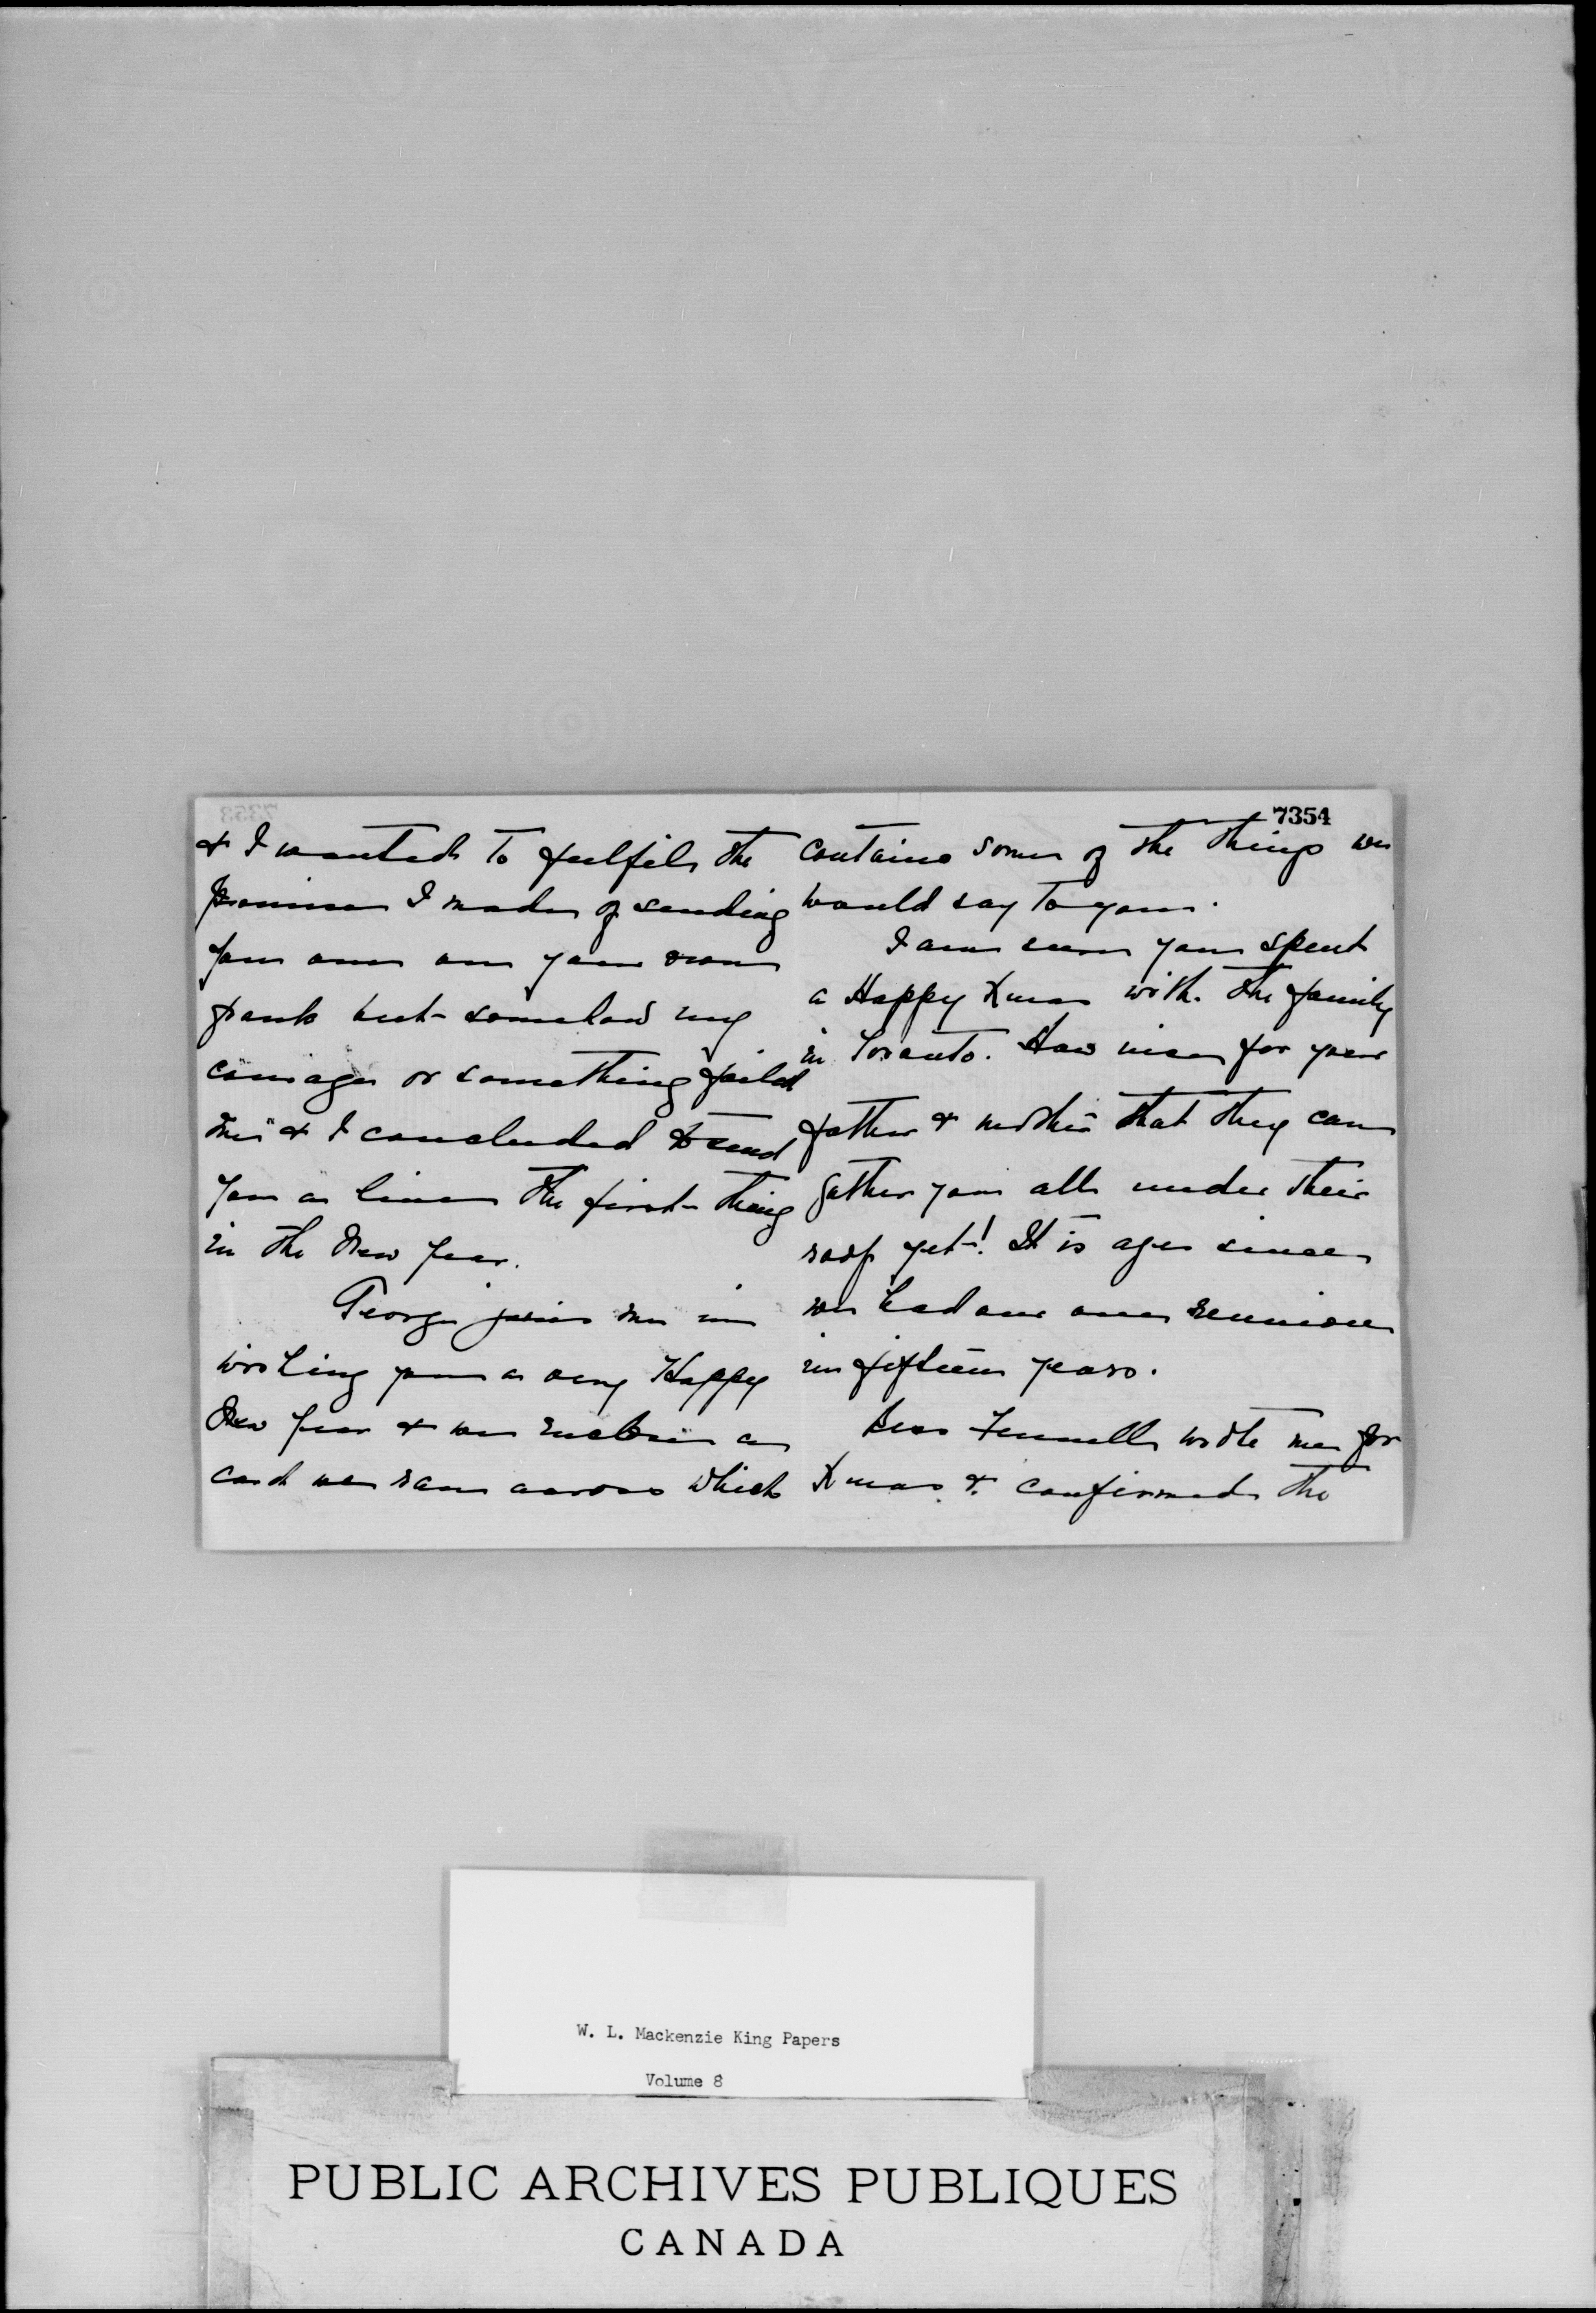 7354
& I wanted to fulfil the
promise I made of sending
you one on your own
hook but somehow my
courage or something failed
me & I concluded to send
you a line the first thing
in the New Year.
George joins me in
wishing you a very Happy
New Year & we enclose a
card we ran across which
contains some of the things we
would say to you.
I am sure you spent
a Happy Xmas with the family
in Toronto. How nice for your
father & mother that they can
gather you all under their
roof yet! It is ages since
we had one our reunion
in fifteen years.
Bess Fennell wrote me for
Xmas & confirmed the
W. L. Mackenzie King Papers
Volume 8
PUBLIC ARCHIVES PUBLIQUES
CANADA